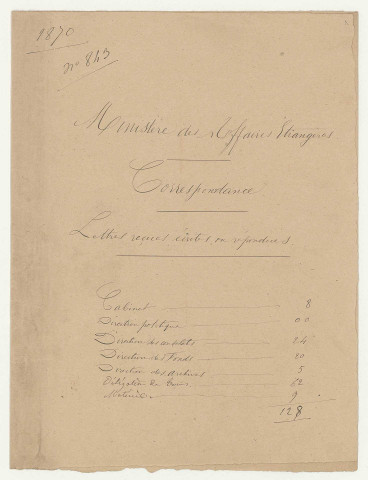 1870
n° 843
Ministère des Affaires Etrangères
Correspondance
Lettres reçues écrites ou répondues
Cabinet 8
Direction politique 00
Direction des consulats 24
Direction des Fonds 20
Direction des archives 5
Délégation de Tours 62
9
128